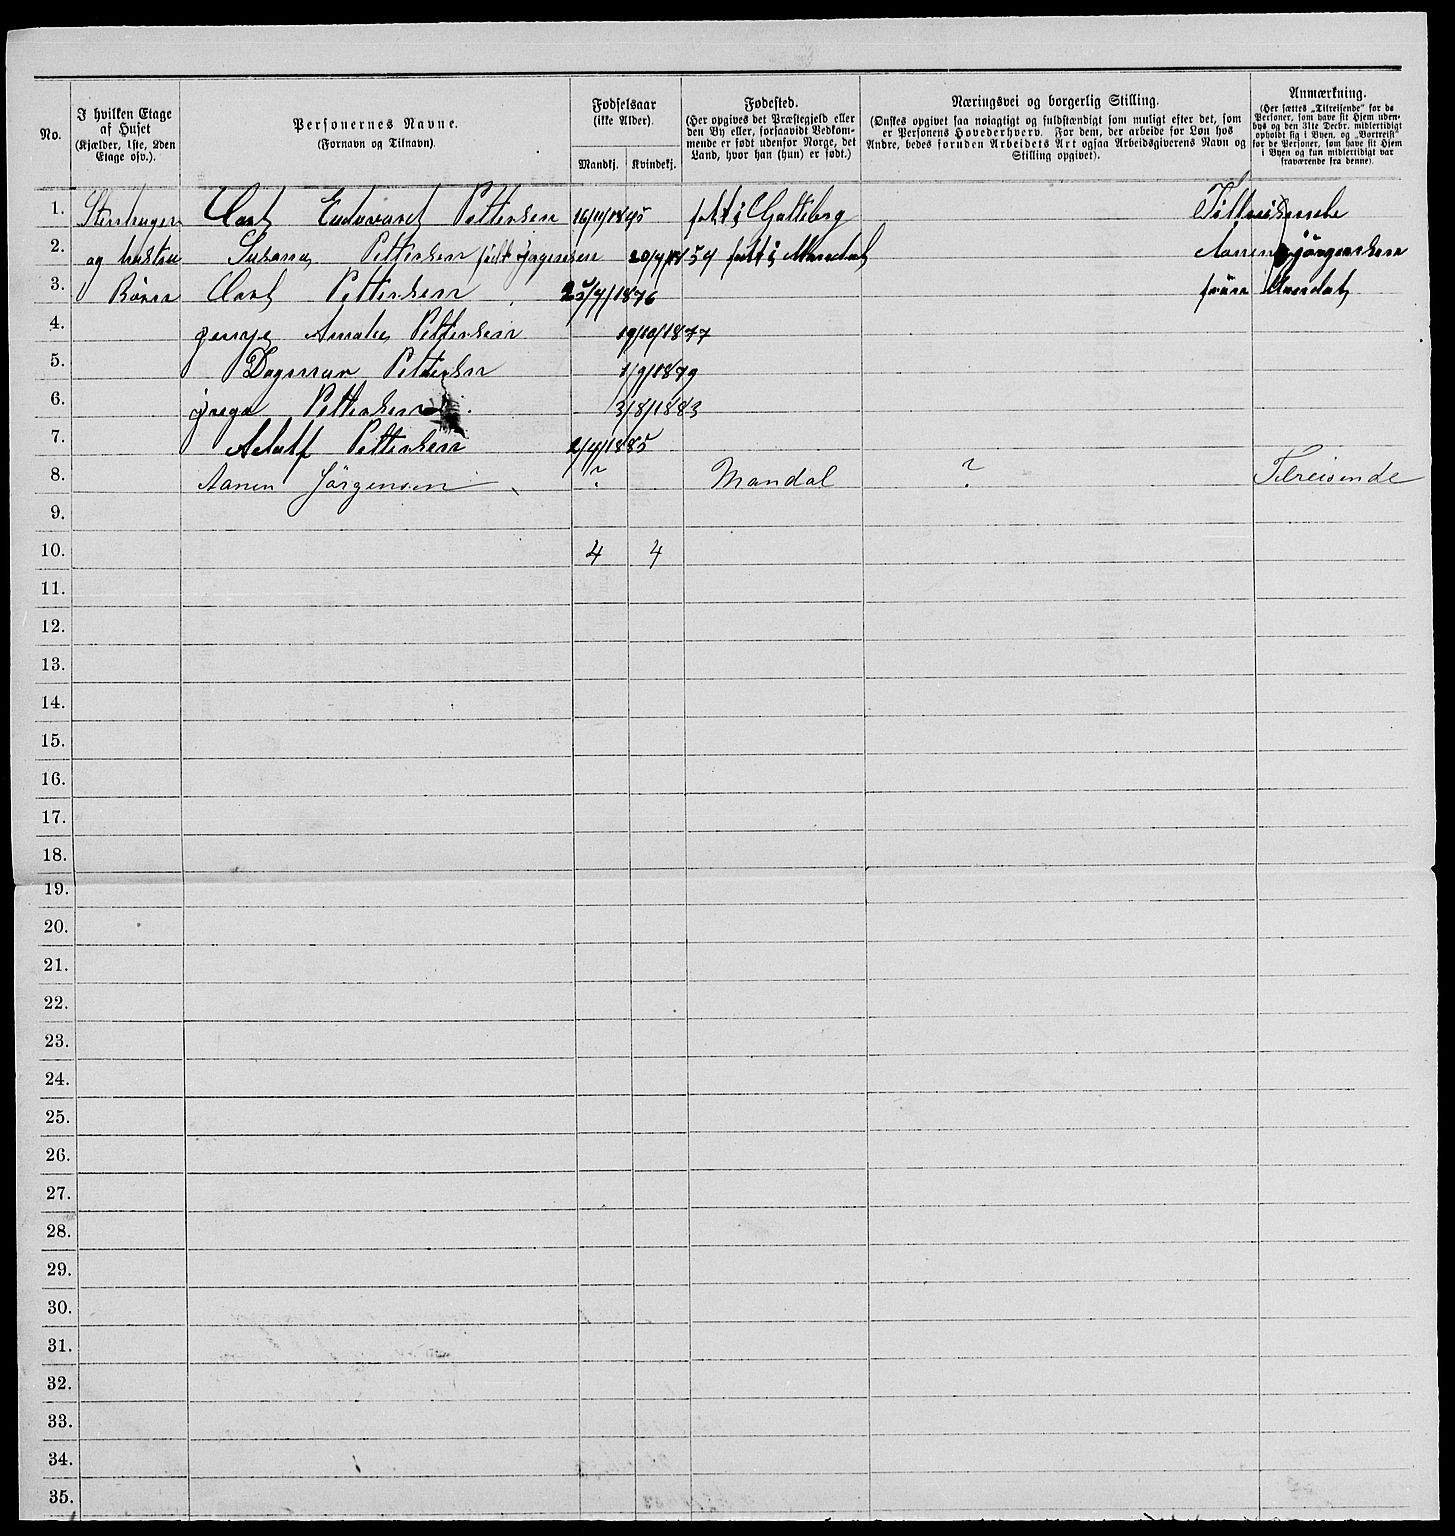 No.
I hvilken Etage
af Huset
(Kjælder, 1ste, 2den
Etage osv.).
Personernes Navne.
(Fornavn og Tilnavn).
Fødselsaar
(ikke Alder).
Mandkj. Kvindekj.
Fødested.
(Her opgives det Præstegjeld eller
den By eller, forsaavidt Vedkom-
mende er født udenfor Norge, det
Land, hvor han (hun) er født.)
Næringsvei og borgerlig Stilling.
(Ønskes opgivet saa nøiagtigt og fuldstændigt som muligt efter det, som
er Personens Hovederhverv. For dem, der arbeide for Løn hos
Andre, bedes foruden Arbeidets Art ogsaa Arbeidsgiverens Navn og
Stilling opgivet).
Anmærkning.
(Her sættes „Tilreisende" for de
Personer, som have sit Hjem uden-
bys og den 31te Decbr. midlertidigt
opholdt sig i Byen, og „Bortreist"
for de Personer, som have sit Hjem
i Byen og kun midlertidigt var
fraværende fra denne).
1. Stenhuger Carl Eduward Pettersen 16/11/1845 født i Gøtteborg Tillreisende
2. og hustru Susana Pettersen født Jørgensen 20/4/1854 født i Mandal Aanen Jørgensken
3. Børn Carl Pettersen 25/4/1876 from Mandal
4. Jenny Amalie Pettersen 19/10/1877
5. Dagmar Pettersen 1/9/1879
6. Pettersen 3/8/1883
7. Adolf Pettersen 2/4/1885
8. Aanen Jørgensen ? Mandal ? Tilreisende
9.
10. 4 4
11.
12.
13.
14.
15.
16.
17.
18.
19.
20.
21.
22.
23.
24.
25.
26.
27.
28.
29.
30.
31.
32.
33.
34.
35.